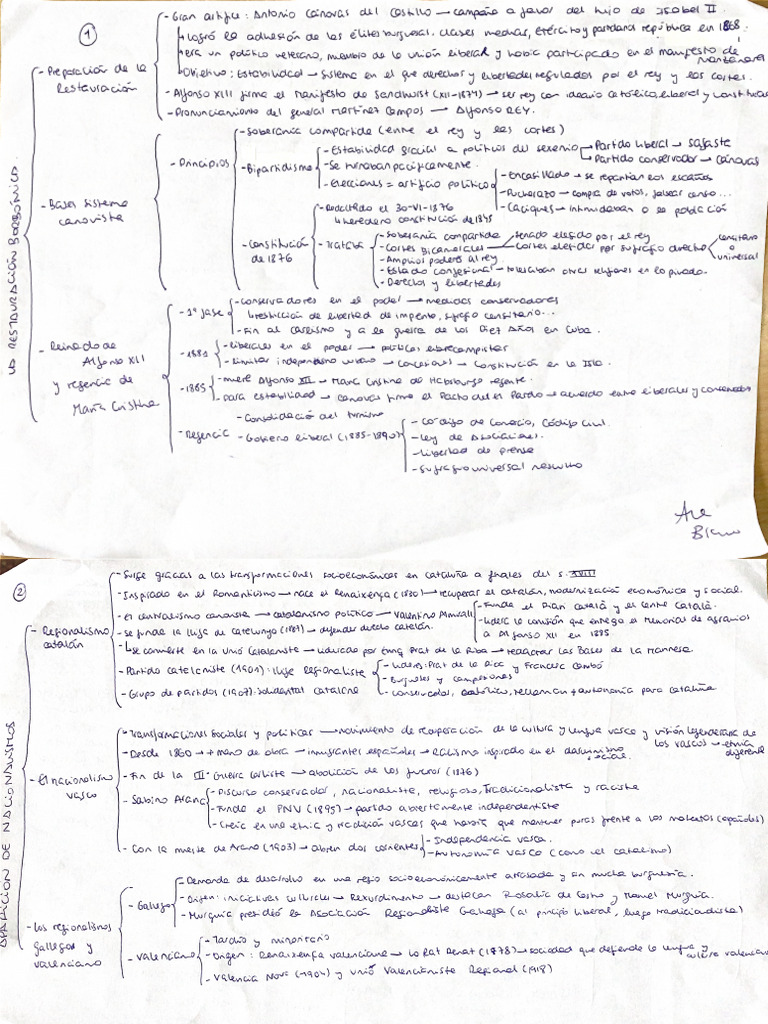 1
- Gran artífice: Antonio Cánovas del Castillo → campaña a favor del hijo de Isabel II.
+ logró la adhesión de las élites burguesas, clases medias, ejército y república en 1868
+ era un político veterano, miembro de la unión liberal y había participado en el manifesto de Manzanares
- Objetivo: Estabilidad → sistema en el que derechos y libertades regulados por el rey y las cortes.
- Preparación de la Restauración
- Alfonso XII firme el Manifesto de Sandhurst (XII-1874) → ser rey con ideario católico, liberal y
- Pronunciamiento del general Martínez Campos → Alfonso REY.
LA RESTAURACIÓN BORBÓNICA
- Bases sistema canovista
- Principios
- Soberanía compartida (entre el rey y las cortes)
- Bipartidismo
- Estabilidad gracias a políticos del sexenio
→ Partido liberal → Sagasta
→ Partido conservador → Cánovas
- Se turnaban pacíficamente.
- Elecciones = artificio político
- Encasillado → se repartían los escaños
- Pucherazo → compra de votos, falsear censo...
- Caciques → intimidaban a la población
- Constitución de 1876
- Redactado el 30-VI-1876
↳ heredero constitución de 1845
- Trataba
- Soberanía compartida
- Cortes Bicamerales
senado elegido por el rey
Cortes elegidas por sufragio directo
censitario o universal
- Amplios poderes al rey
- Estado confesional → toleraban otras religiones en lo privado.
- Derechos y libertades
- Reinado de Alfonso XII y regencia de María Cristina
- 1ª fase
- Conservadores en el poder → medidas conservadoras
↳ restricción de libertad de imprenta, sufragio censitario...
- Fin al carlismo y a la guerra de los Diez Años en Cuba.
- 1881
- liberales en el poder → políticas librecambistas
- limitar independismo cubano → concesiones → Constitución en la Isla.
- 1885
- muere Alfonso XII → María Cristina de Habsburgo regente.
- para estabilidad → Cánovas firme el Pacto del El Pardo → acuerdo entre liberales y conservadores
- Regencia
- Consolidación del turnismo
- Gobierno liberal (1885-1890)
- Código de Comercio, Código Civil.
- Ley de Asociaciones.
- Libertad de prensa
- Sufragio universal masculino
2
APARICIÓN DE NACIONALISMOS
- Regionalismo catalán
- Surge gracias a las transformaciones socioeconómicas en Cataluña a finales del s. XVIII
- Inspirado en el Romanticismo → nace el Renaixença (1830) → recuperar el catalán, modernización económica y social.
- El centralismo canovista → catalanismo político → Valentino Almirall
- Funda el Diari Català y el Centre Català.
- lideró la comisión que entrega el Memorial de agravios a Alfonso XII en 1885.
- Se funda la Lliga de Catalunya (1887) → defender dietlo catalán.
↳ Se convierte en la Unió Catalanista → liderado por Enriq Prat de la Riba → redactar las Bases de la Manresa
- Partido catalanista (1901): Lliga Regionalista
- Líderes: Prat de la Riba y Francesc Cambó
- Burgueses y campesinos
- Conservador, católico, reclaman + autonomía para Cataluña
- Grupo de partidos (1907): Solidaritat Catalana
- El nacionalismo vasco
- Transformaciones sociales y políticas → movimiento de recuperación de la cultura y lengua vasca y visión legendaria de los vascos → etnia diferente
- Desde 1860 → + mano de obra → inmigrantes españoles → Racismo inspirado en el darwinismo social.
- Fin de la III Guerra Carlista → abolición de los fueros (1876)
- Sabino Arana
- Discurso conservador, nacionalista, religioso, tradicionalista y racista
- Funda el PNV (1895) → partido abiertamente independentista
- Creía en una etnia y tradición vascas que había que mantener puras frente a los maketos (españoles)
- Con la muerte de Arana (1903) → abren dos corrientes
- Independencia vasca.
- Autonomía vasca (como el catalismo)
- Los regionalismos gallegos y valenciano
- Gallego
- Demanda de desarrollo en una región socioeconómicamente atrasada y sin mucha burguesía.
- Origen: iniciativas culturales → Rexurdimento → destacan Rosalía de Castro y Manuel Murguía.
- Murguía presidió la Asociación Regionalista Gallega (al principio liberal, luego tradicionalista)
- Valenciano
- Tardío y minoritario
- Origen: Renaixença valenciana → Lo Rat Penat (1878) → sociedad que defiende la lengua y cultura valenciana
- Valencia Nova (1904) y Unió Valencianista Regional (1918)